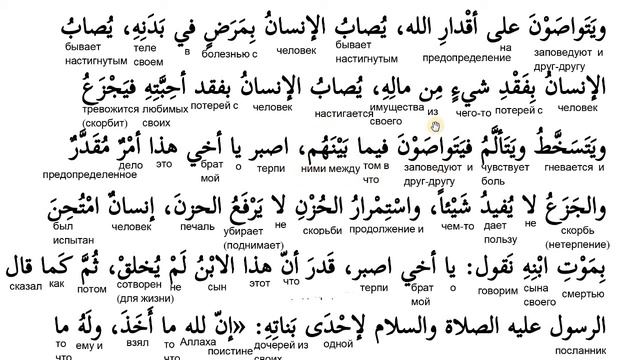 ويَتَواصَوْنَ على أقْدارِ الله، يُصابُ الإنسانُ بِمَرَضٍ في بَدَنِهِ، يُصابُ
бывает настигнутым теле своем в болезнью с человек бывает настигнутым предопределение на заповедуют и друг-другу
الإنسانُ بِفَقْدِ شيءٍ مِن مالِهِ، يُصابُ الإنسانُ بفقد أحِبَّتِهِ فيَجْزَعُ
тревожится (скорбит) любимых своих потерей с человек настигается имущества своего из чего-то потерей с человек
ويَتَسَخَّطُ ويَتَألَّمُ فيَتَواصَوْنَ فيما بَيْنَهُم، اصبر يا أخي هذا أمْرٌ مُقَدَّرٌ
предопределенное дело это брат мой о терпи ними между том в что заповедуют и друг-другу чувствует боль гневается и
والجَزَعُ لا يُفيدُ شَيْئاً، واسْتِمْرارُ الحُزْنِ لا يَرْفَعُ الحزنَ، إنسانٌ امْتُحِنَ
был испытан человек печаль убирает (поднимает) не скорби продолжение и чем-то дает пользу не скорбь (нетерпение)
بِمَوْتِ ابْنِهِ نَقول: يا أخي اصبر، قَدَرَ أنّ هذا الابْنُ لَمْ يُخلقْ، ثُمَّ كَما قال
сказал как потом сотворен (для жизни) не сын этот что терпи брат мой о говорим сына своего смертью
الرسول عليه الصلاة والسلام لإحْدَى بَناتِهِ: «إنّ لله ما أَخَذَ، ولَهُ ما
то что ему и взял то что Аллаха поистине дочерей из своих одной посланник